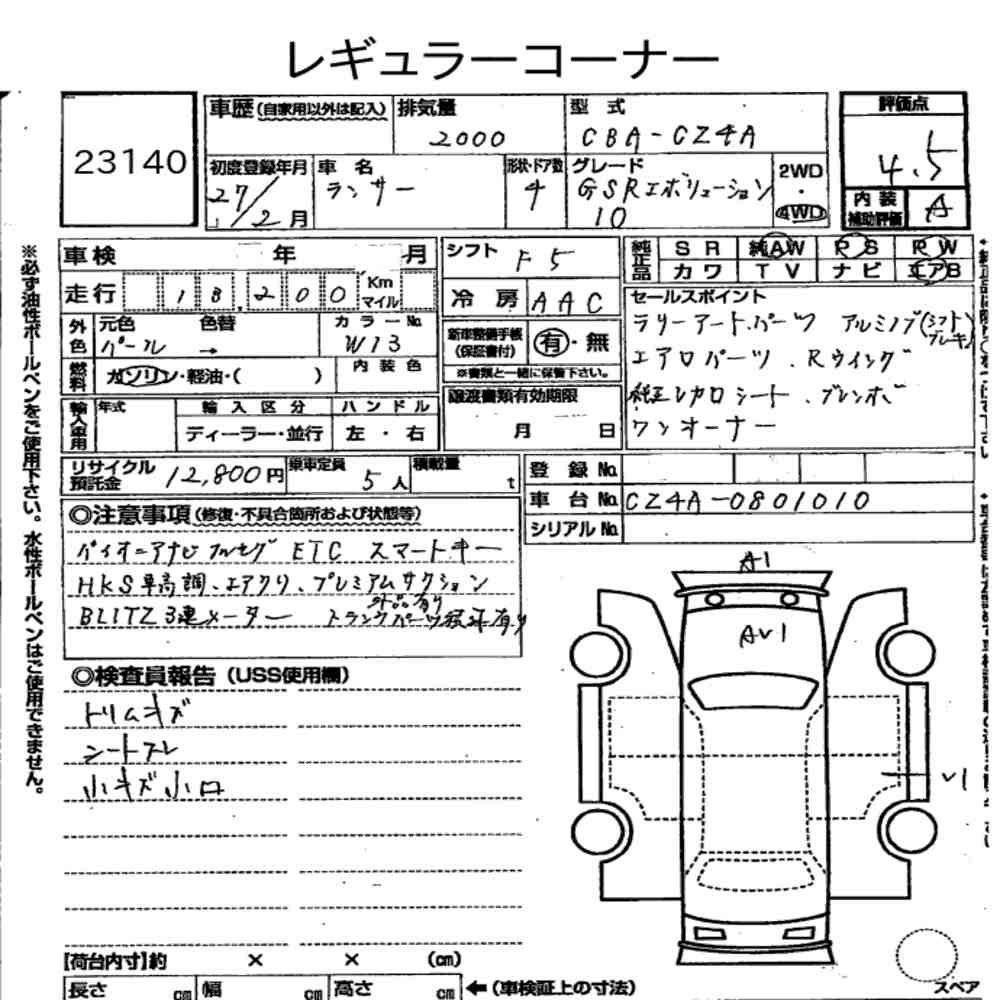 レギュラーコーナー
23140
車歴(自家用以外は記入)
排気量
2000
型式
CBA-CZ4A
評価点
4.5
内装補助評価
A
初度登録年月
27/2月
車名
ランサー
形状・ドア数
4
グレード
GSRエボリューション
10
2WD
・
4WD
車検 年 月
走行 18,200 Km マイル
シフト F5
冷房 AAC
純正品
SR 純AW PS PW
カワ TV ナビ エアB
外色
元色 色替
パール →
カラーNo.
W13
内装色
燃料
ガソリン・軽油・( )
新車整備手帳
(保証書付)
有・無
※書類と一緒に保管下さい。
セールスポイント
ラリーアートパーツ アルミノブ(シフト ブレーキ)
エアロパーツ、Rウイング
純正レカロシート、ブレンボ
ワンオーナー
輸入車用
年式
輸入区分
ディーラー・並行
ハンドル
左・右
譲渡書類有効期限
月 日
リサイクル預託金 12,800円
乗車定員 5人
積載量 t
登録No.
車台No. CZ4A-0801010
シリアルNo.
◎注意事項(修復・不具合箇所および状態等)
パイオニアナビ フルセグ ETC スマートキー
HKS車高調、エアクリ、プレミアムサクション
BLITZ3連メーター
外品有り
◎検査員報告(USS使用欄)
トリムキズ
シートスレ
小キズ小凹
A1
AU1
U1
【荷台内寸】約 × × (cm)
長さ cm 幅 cm 高さ cm ←(車検証上の寸法)
スペア
※必ず油性ボールペンをご使用下さい。水性ボールペンはご使用できません。